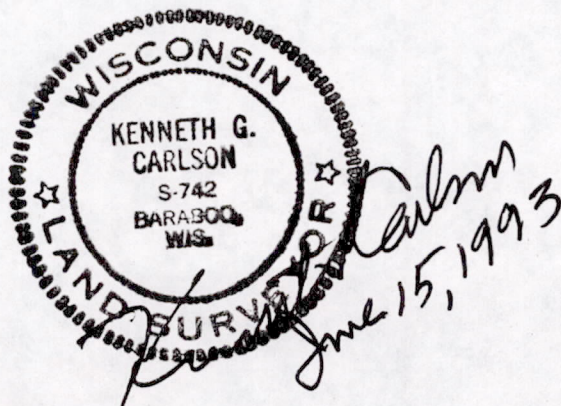 WISCONSIN
KENNETH G.
CARLSON
S-742
BARABOO,
WIS.
LAND SURVEYOR
Carlson
June 15, 1993